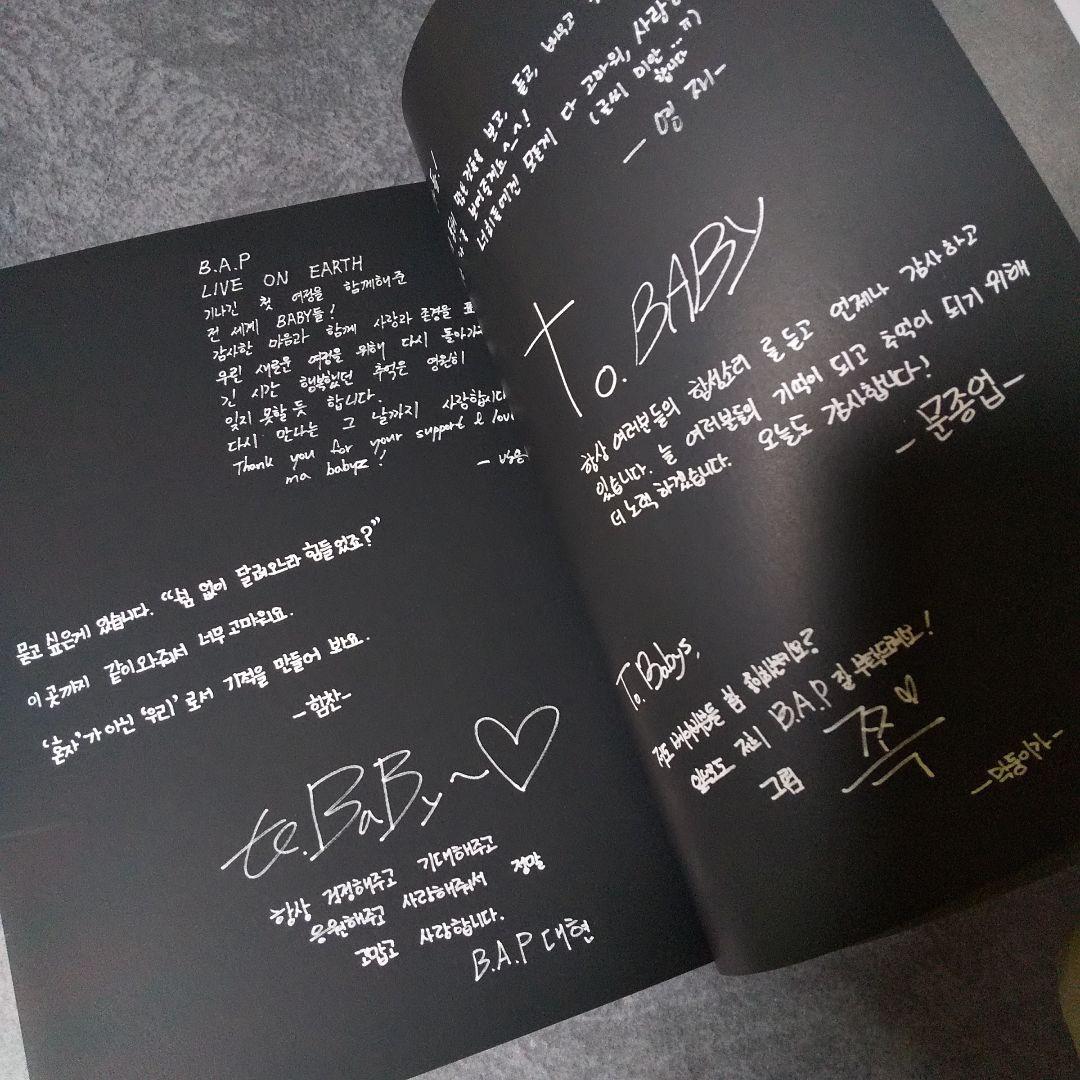 B.A.P
LIVE ON EARTH
기나긴 첫 여정을 함께해준
전 세계 BABY들!
감사한 마음과 함께 사랑과 존경을 표
우린 새로운 여정을 위해 다시 돌아가
긴 시간 행복했던 추억은 영원히
잊지 못할 듯 합니다.
다시 만나는 그 날까지 사랑합시다
Thank you for your support & love
ma babyz!!
묻고 싶은게 있습니다. “쉼 없이 달려오느라 힘들었죠?”
이 곳까지 같이 와줘서 너무 고마워요..
‘혼자’가 아닌 ‘우리’로서 기적을 만들어 봐요..
-힘찬-
to.BaBy~♡
항상 걱정해주고 기대해주고
응원해주고 사랑해줘서 정말
고맙고 사랑합니다.
B.A.P 대현
보고, 듣고, 배우고
보여줄게요^_^!
너희들에겐 모든게 다 고마워, 사랑해
(글씨 미안...ㅠ)
합니다
- 영재-
To. BABY
항상 여러분들의 함성소리를 듣고 언제나 감사하고
있습니다. 늘 여러분들의 기억이 되고 추억이 되기 위해
더 노력 하겠습니다. 오늘도 감사합니다!
- 문종업 -
To. Babys,
저도 베이비분들
앞으로도 저희 B.A.P 잘 부탁드려요!
그럼 쪽 ♡
-막둥이가-